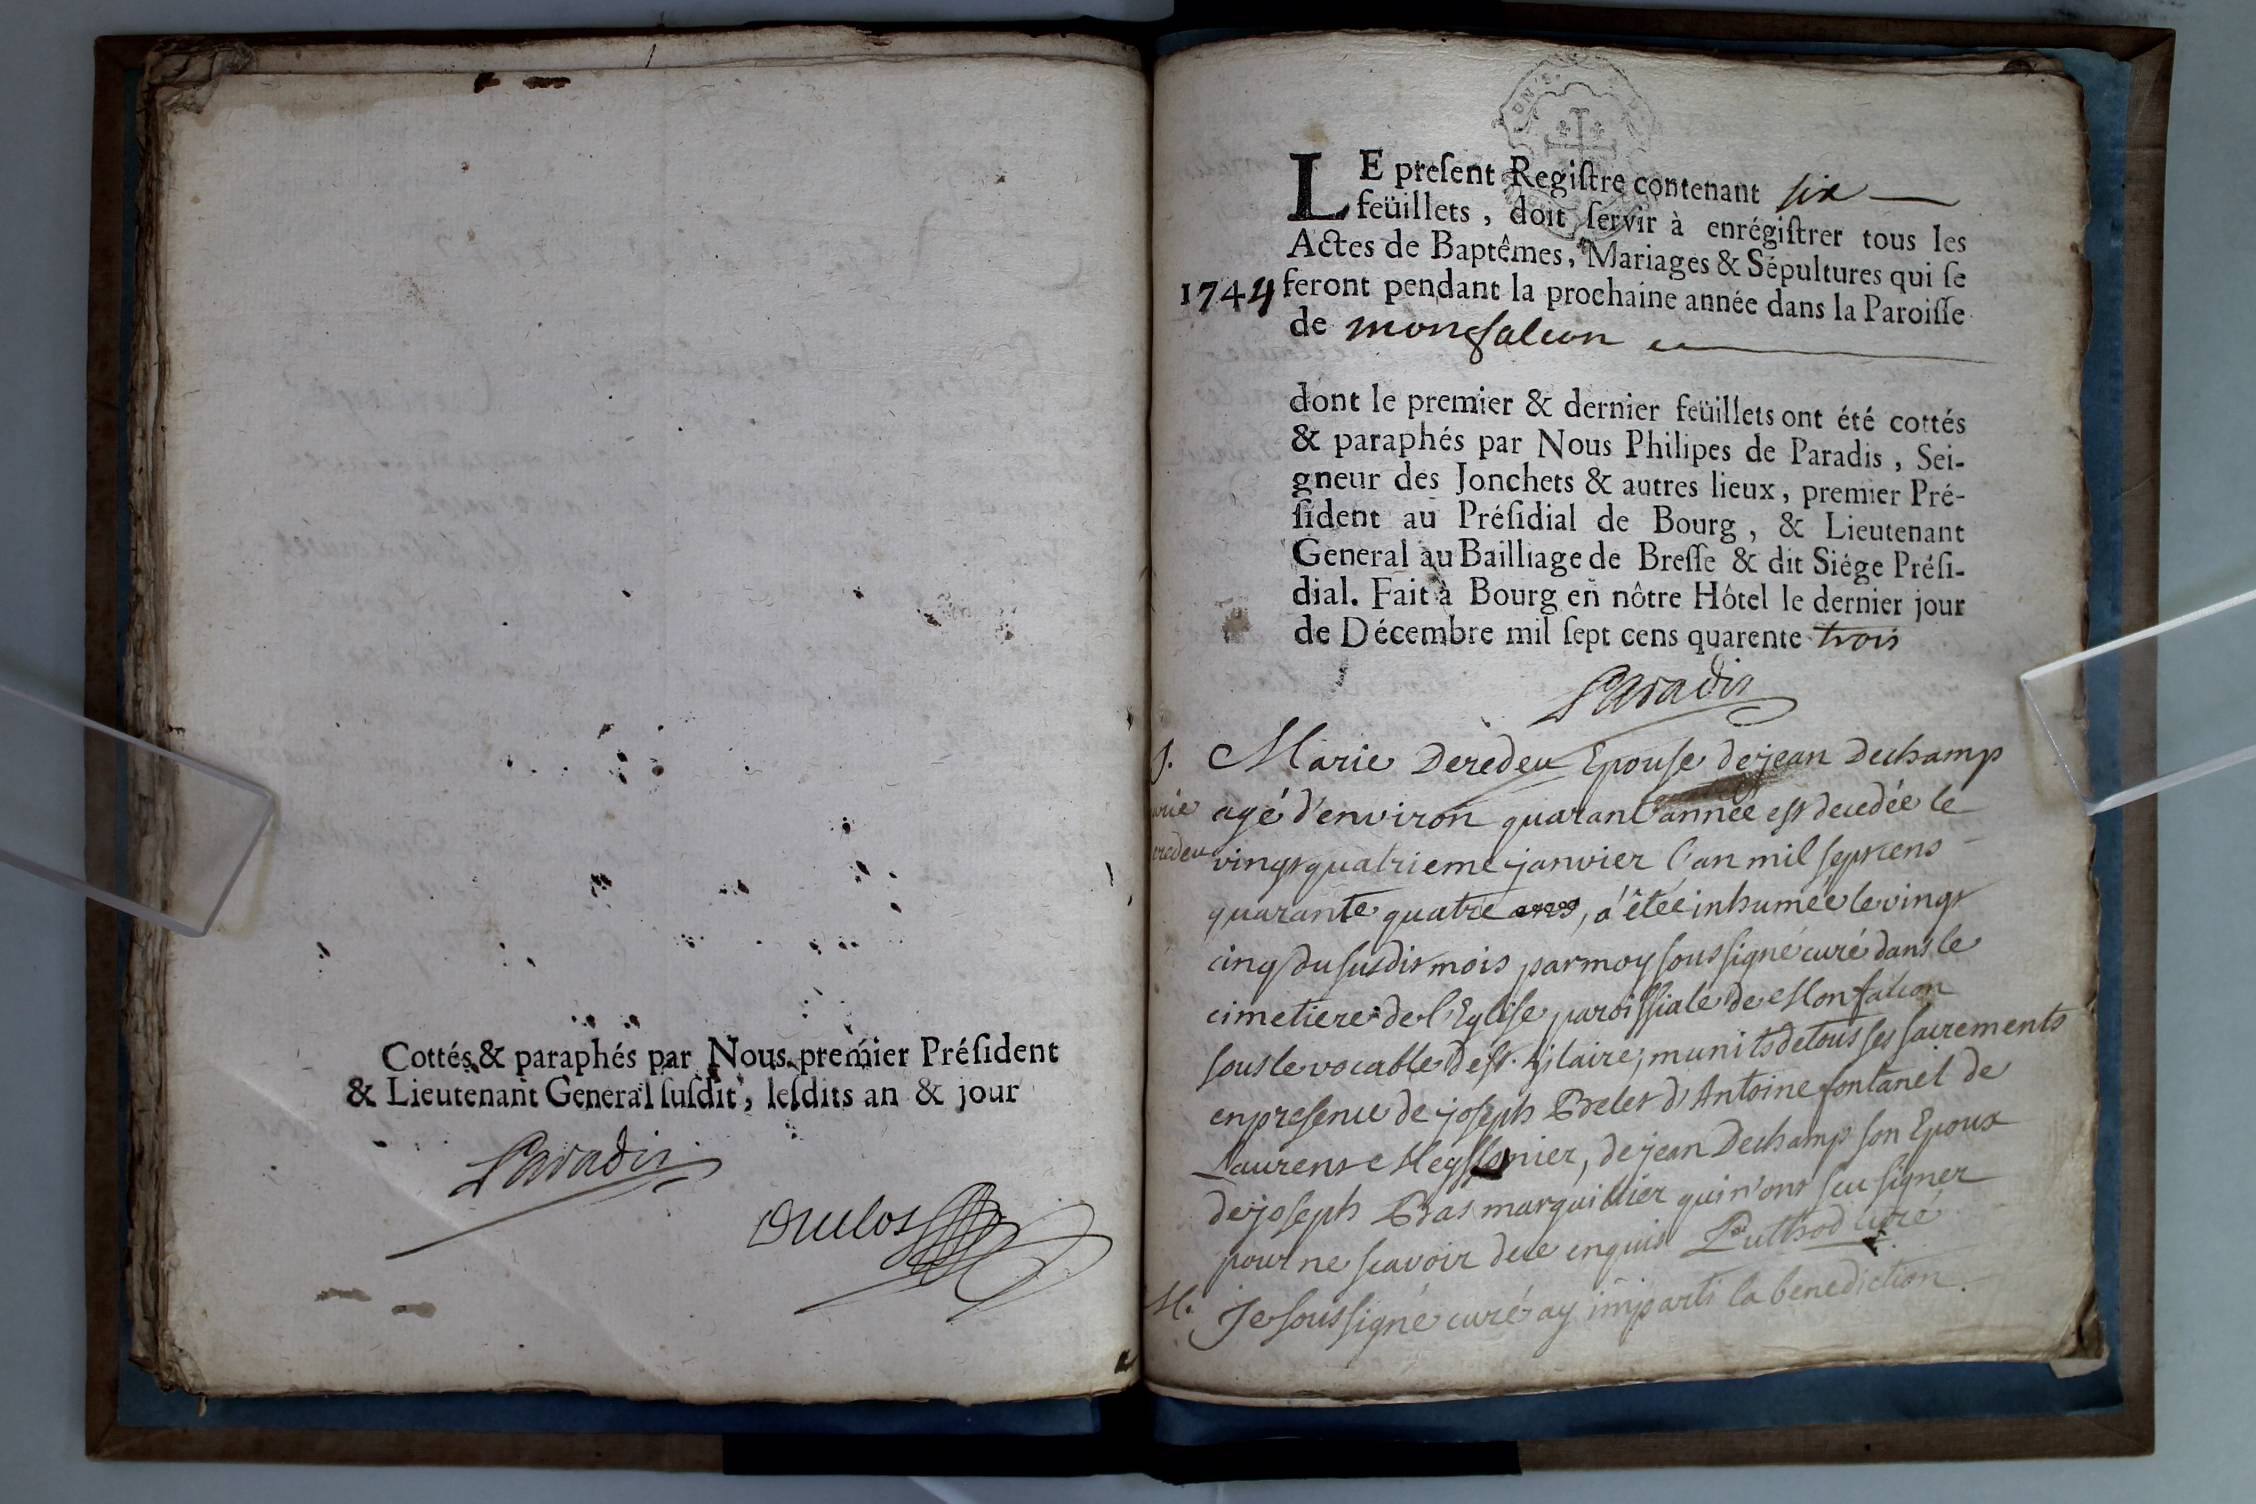 Cottés & paraphés par Nous premier Préſident
& Lieutenant General ſuſdit, leſdits an & jour
Paradis
Duclos
LE preſent Regiſtre contenant six
feüillets, doit ſervir à enrégiſtrer tous les
Actes de Baptêmes, Mariages & Sépultures qui ſe
1744 feront pendant la prochaine année dans la Paroiſſe
de monfalcon
dont le premier & dernier feüillets ont été cottés
& paraphés par Nous Philipes de Paradis, Sei-
gneur des Jonchets & autres lieux, premier Pré-
ſident au Préſidial de Bourg, & Lieutenant
General au Bailliage de Breſſe & dit Siége Préſi-
dial. Fait à Bourg en nôtre Hôtel le dernier jour
de Décembre mil ſept cens quarente trois
Paradis
S. Marie Deredeu Epouſe de jean Dechamp
arie agé d'environ quarant année eſt decedée le
eredeu vingt quatrieme janvier l'an mil ſept cens
quarante quatre, a étée inhumée le vingt
cinq du ſusdit mois par moy ſous ſigné curé dans le
cimetiere de l'Egliſe paroiſſiale de Monfalcon
ſous le vocable de ſt. hilaire, munits de tous ſes ſacrements
en preſence de joſeph d'Antoine fontanel de
Laurent Meyſſonier, de jean Dechamp ſon Epoux
de joſeph Bas marguillier qui n'ont ſcu ſigner
pour ne ſcavoir de ce enquis Puthod curé
M. Je ſous ſigné curé ay imparti la benediction